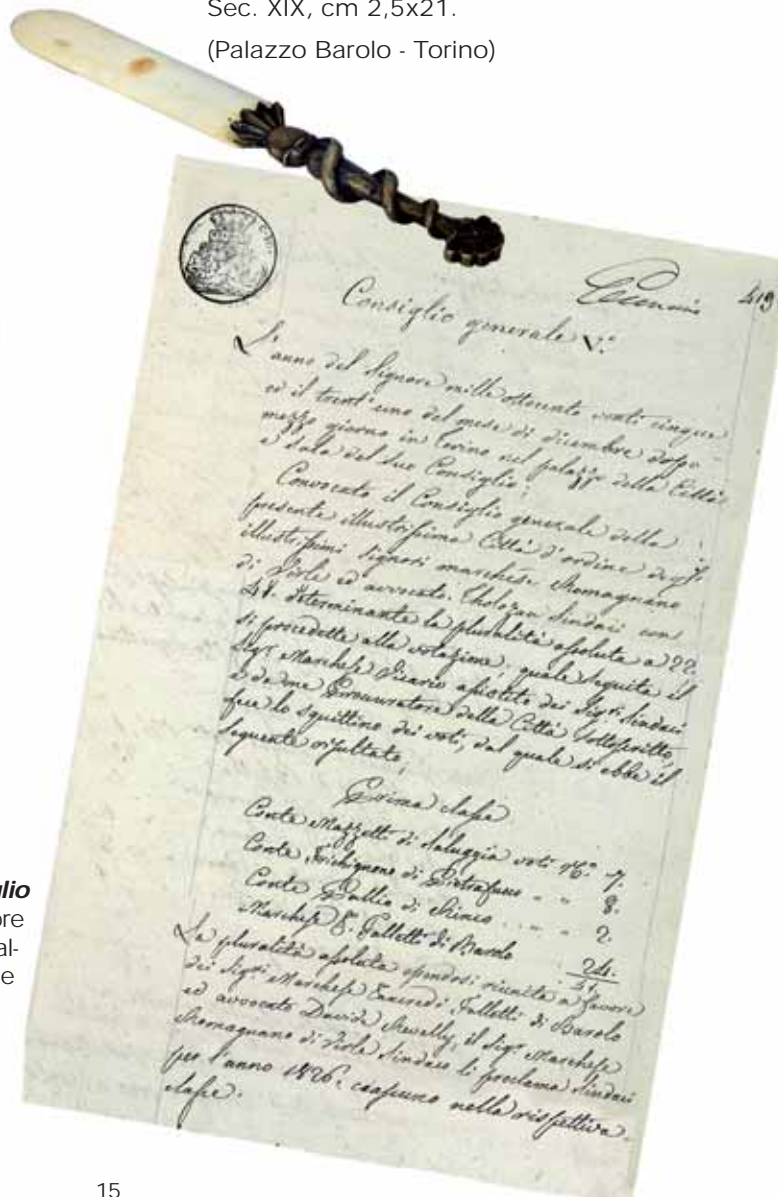 Sec. XIX, cm 2,5x21.
(Palazzo Barolo - Torino)
419
Consiglio generale V.º
L'anno del Signore mille ottocento venti cinque
ed il trent'uno del mese di dicembre dopo
mezzo giorno in Torino nel palazzo della Città
e sala del suo Consiglio;
Convocato il Consiglio generale della
presente illustrissima Città d'ordine degl'
illustrissimi Signori marchese Romagnano
di Virle ed avvocato Tholozan Sindaci con
determinante la pluralità assoluta a 22.
si procedette alla votazione, quale seguita il
Sigr Marchese Vicario assistito dei Sigri Sindaci
e da me Procuratore della Città sottoscritto,
fece lo squittino dei voti, dal quale si ebbe il
seguente risultato,
Prima classe
Conte Mazzetti di Saluggia voti Nº 7.
Conte Frichignono di 8.
Conte Pallio di Rinco 2.
Marchese Falletti di Barolo 24.
41.
La pluralità assoluta essendosi riunita a favore
dei Sigri Marchese Tancredi Falletti di Barolo
ed avvocato Davide il Sigr Marchese
Romagnano di Virle Sindaco li proclama Sindaci
per l'anno 1826. caduno nella rispettiva
classe.
glio
bre
al-
e
15